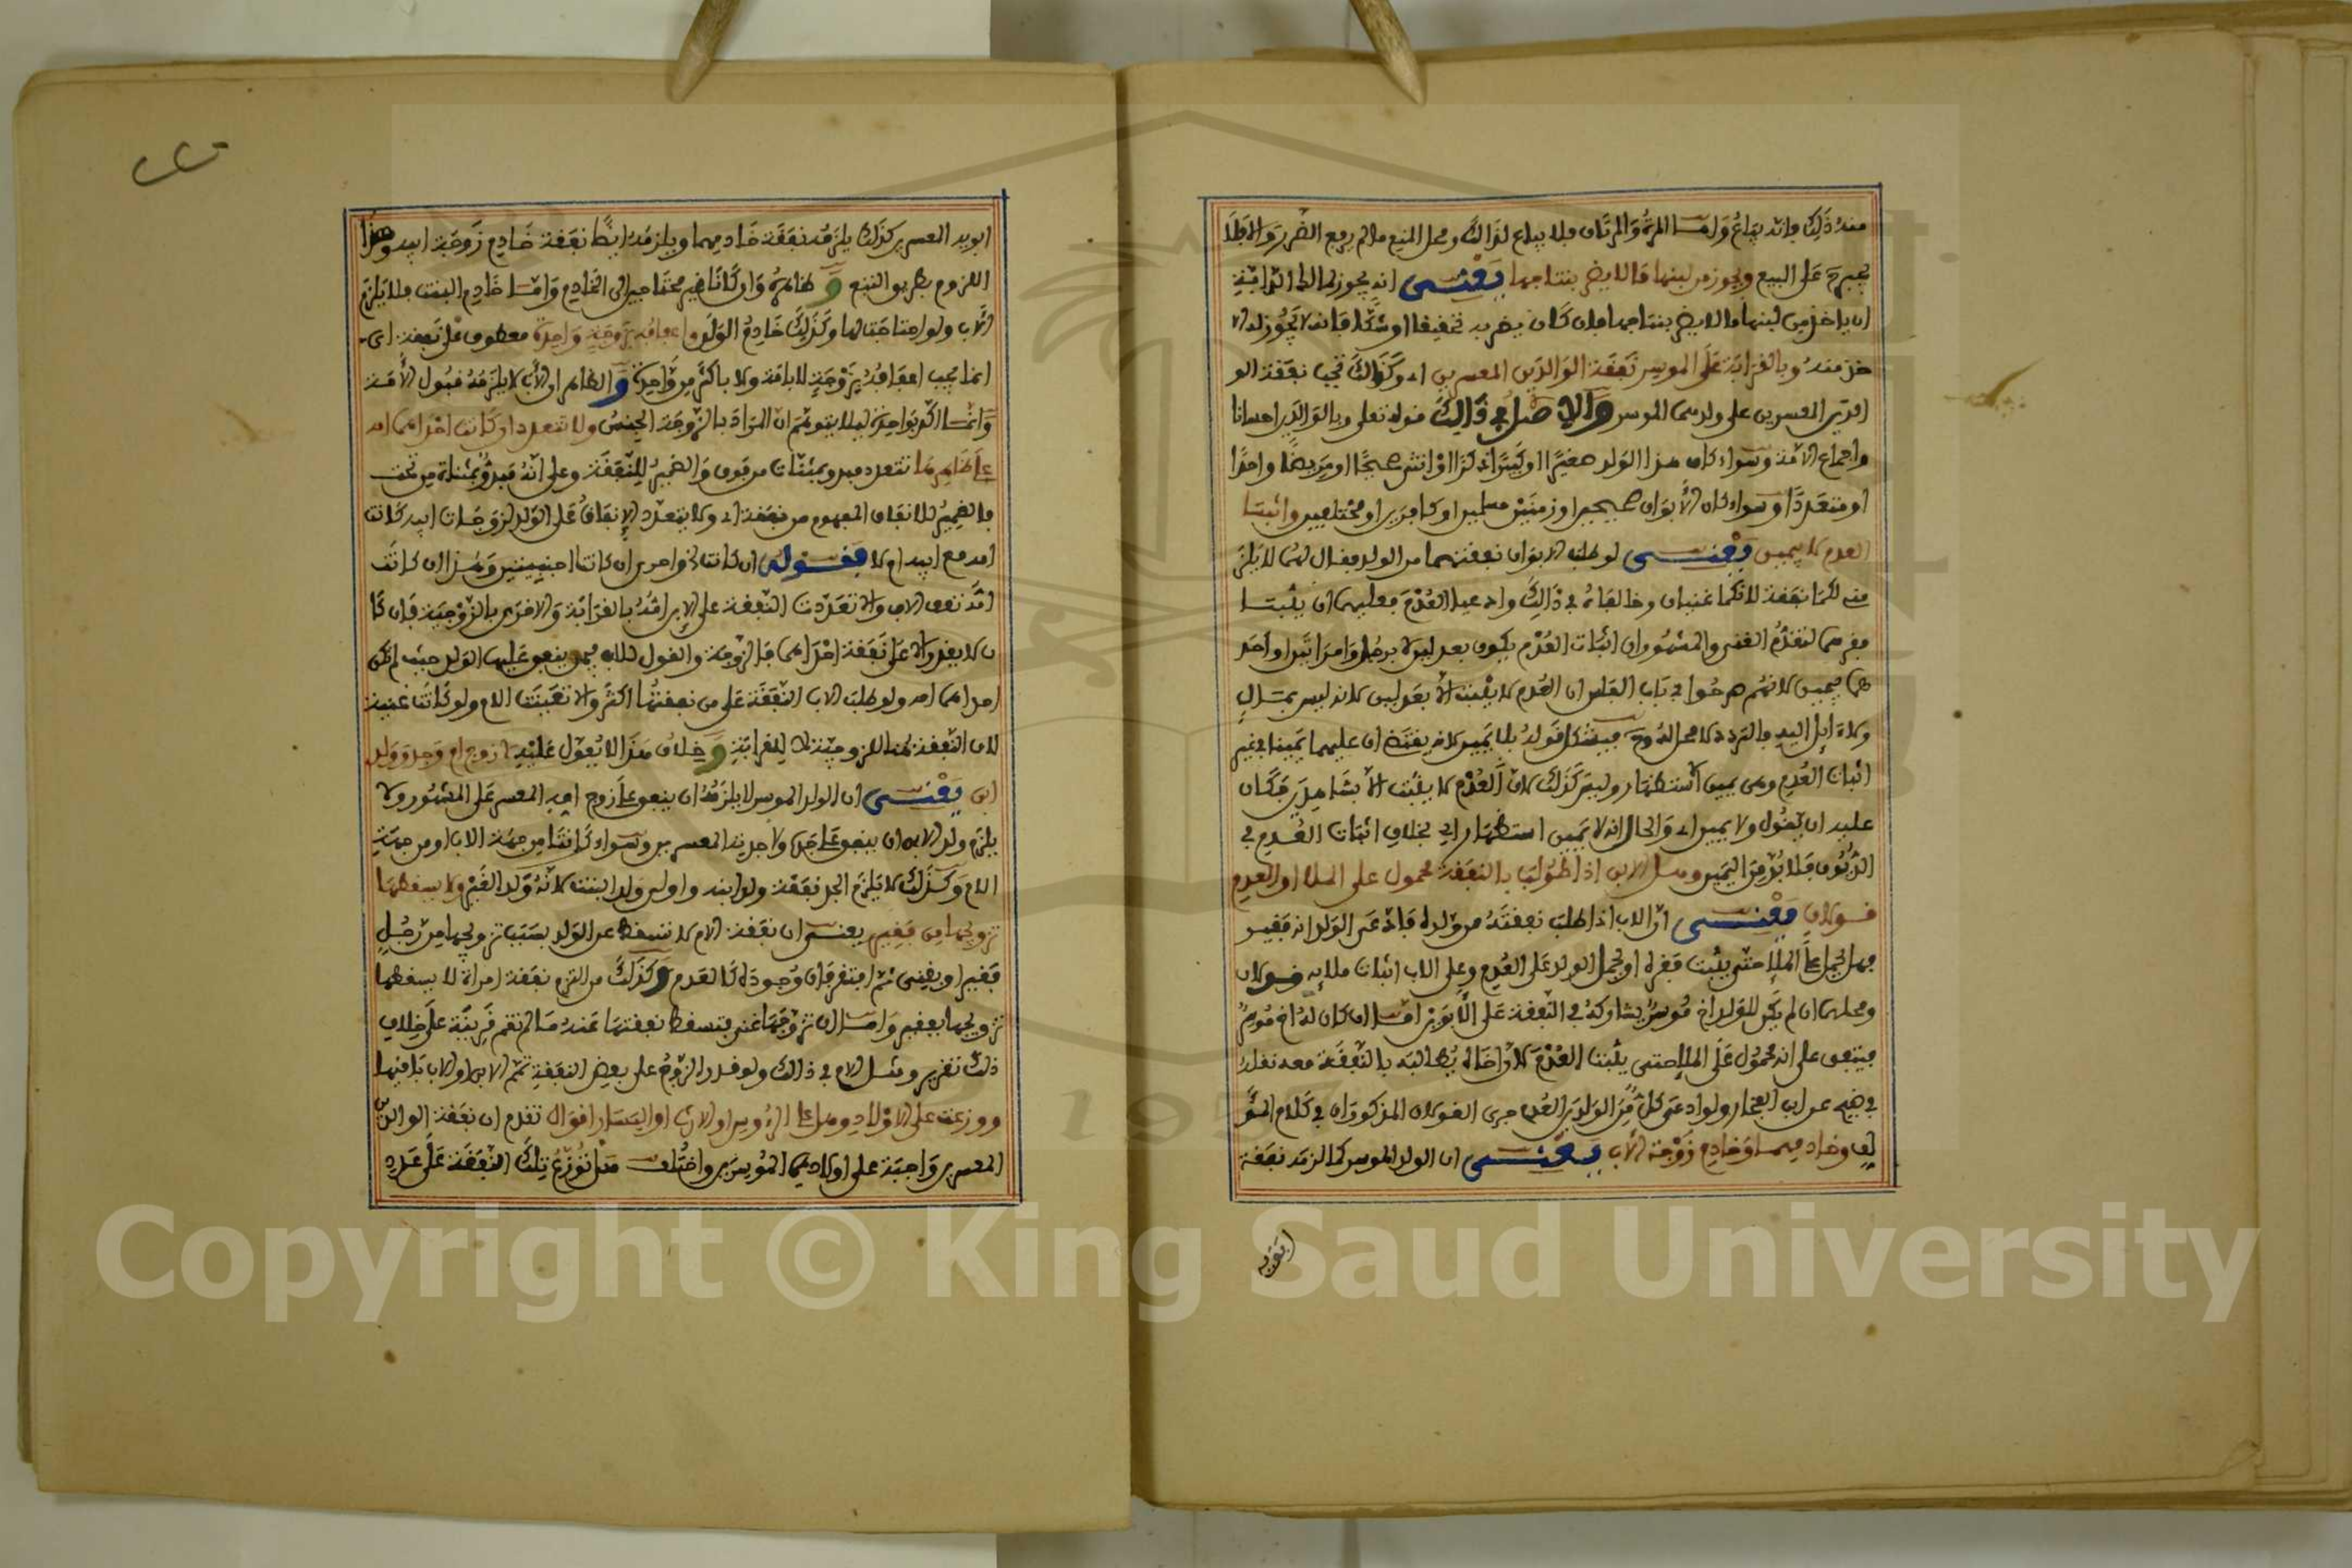 منه ذلك فانه يباع وامــا المرة والمرتان فلا يباع لذالك ومحل المنع ما لم يرفع الضرر والا فلا
يجبره على البيع ويجوز من لبنها ما لا يضر بنتاجها يعنــى انه يجوز لمالك الدابة
ان ياخذ من لبنها ما لا يضر بنتاجها فان كان يضر به تحقيقا او شكا فانه لا يجوز له الا
خذ منه وبالقرابة على الموسر نفقة الوالدين المعسرين اي وكذالك تجب نفقة الو
الدين المعسرين على ولدهما الموسر والاصل في ذالك قوله تعلى وبالوالدين احسانا
واجماع الامة وسواء كان هذا الولد صغيرا او كبيرا ذكرا او انثى صحيحا او مريضا واحدا
او متعددا وسواء كان الابوان صحيحين او زمنين مسلمين او كافرين او مختلفين واثبتــا
العدم لا بيمين يعنــى لو طلب الابوان نفقتهما من الولد فقال لهما لا يلز
منى لكما نفقة لانكما غنيان وخالفاه في ذالك وادعيا العدم فعليهما ان يثبتــا
فقرهما لتقدم الغنى والمشهور ان اثبات العدم يكون بعدلين لا برجل وامراتين او احد
هما بيمين لانهم صرحوا في باب الفلس ان العدم لا يثبت الا بعدلين لانه ليس بمــال
ولا ءايل اليه
اثبات العدم وهي يمين الاستظهار وليس كذلك لان العدم لا يثبت الا بشاهدين فكان
عليه ان يقول ولا يمين اي والحال انه لا يمين استظهار اي بخلاف اثبات العدم في
الديون فلا بد من اليمين وهــل الابن اذا طولب بالنفقة محمول على الملاء او العدم
قــولان يعنــى ان الاب اذا طلب نفقته من ولده فادعى الولد انه فقير
فهل يحمل على الملإ حتى يثبت فقره او يحمل الولد على العدم وعلى الاب اثبات ملإيه قــولان
ومحلهما ان لم يكن للولد اخ موسر يشاركه في النفقة على الابوين امــا ان كان له اخ موسر
فيتفق على انه محمول على الملإ حتى يثبت العدم لان اخاه يطالبه بالنفقة معه نقله
في ضيح عن ابن الفخار ولو ادعى كل من الولدين العدم جرى القولان المذكوران في كلام المؤ
لف وخادمهمــا وخادم زوجة الاب يعنــى ان الولد الموسر كما تلزمه نفقة
ابويه
ابويه المعسرين كذلك يلزمه نفقة خادمهما ويلزمه ايضا نفقة خادم زوجة ابيه وهذا
اللزوم بطريق التبع و ظاهره وان كانا غير محتاجين الى الخادم وامــا خادم البنت فلا يلزم
الاب ولو احتاجت لها وكذلك خادم الولد واعفافه بزوجة واحدة معطوف على نفقة اى
انما يجب اعفافه بزوجة لا بامة ولا باكثر من واحدة و الظاهر ان الاب لا يلزمه قبول الامة
وانمــا اكد بواحدة ليلا يتوهم ان المراد بالزوجة الجنس ولا تتعدد ان كانت احداهما امه
على ظاهرها تتعدد فيه وبمثنات من فوق والضمير للنفقة وعلى انه فيه بمثناة من تحت
فالضمير للانفاق المفهوم من نفقة اي ولا يتعدد الانفاق على الولد لزوجات ابيه كانت
امه مع ابيه ام لا فقــوله ان كانت
امه تعين الام والا تعددت النفقة على الاب امه بالقرابة والاخرى بالزوجية فان كا
ن لا يقدر الا على نفقة احداهما فالزوجة والقول للاب فيمن ينفق عليها الولد حيث لم تكن
احداهما امه ولو طلب الاب النفقة على من نفقتها اكثر والا تعينت الام ولو كانت غنية
لان النفقة هنا للزوجية لا للقرابة و خلاف هذا لا يعول عليه لا زوج ام وجد وولد
ابن يعنــى ان الولد الموسر لا يلزمه ان ينفق على زوج امه المعسر على المشهور ولا
يلزم ولد الابن ان ينفق على جده ولا جدته المعسرين وسواء كانتا من جهة الاب او من جهة
الام وكذلك لا يلزم الجد نفقة ولد ابنه واولى ولد البنت لانه ولد الغير ولا يسقطها
تزويجها من فقير يعنــى ان نفقة الام لا تسقط عن الولد بسبب تزويجها من رجل
فقير او بغنى ثم افتقر فان وجوده كالعدم وكذلك من التزم نفقة امراة لا يسقطها
تزويجها بفقير وامــا ان تزوجها غنى فتسقط نفقتها عنه ما لم تقم قرينة على خلاف
ذلك تقرير ومثــل الام في ذالك ولو قدر الزوج على بعض النفقة تمم الابن او الاب باقيها
ووزعت على الاولاد وهل على الرءوس او الارث او اليسار اقوال تقدم ان نفقة الوالدين
المعسرين واجبة على اولادهما الموسرين واختلف هل توزع تلك النفقة على عدد
Copyright © King Saud University